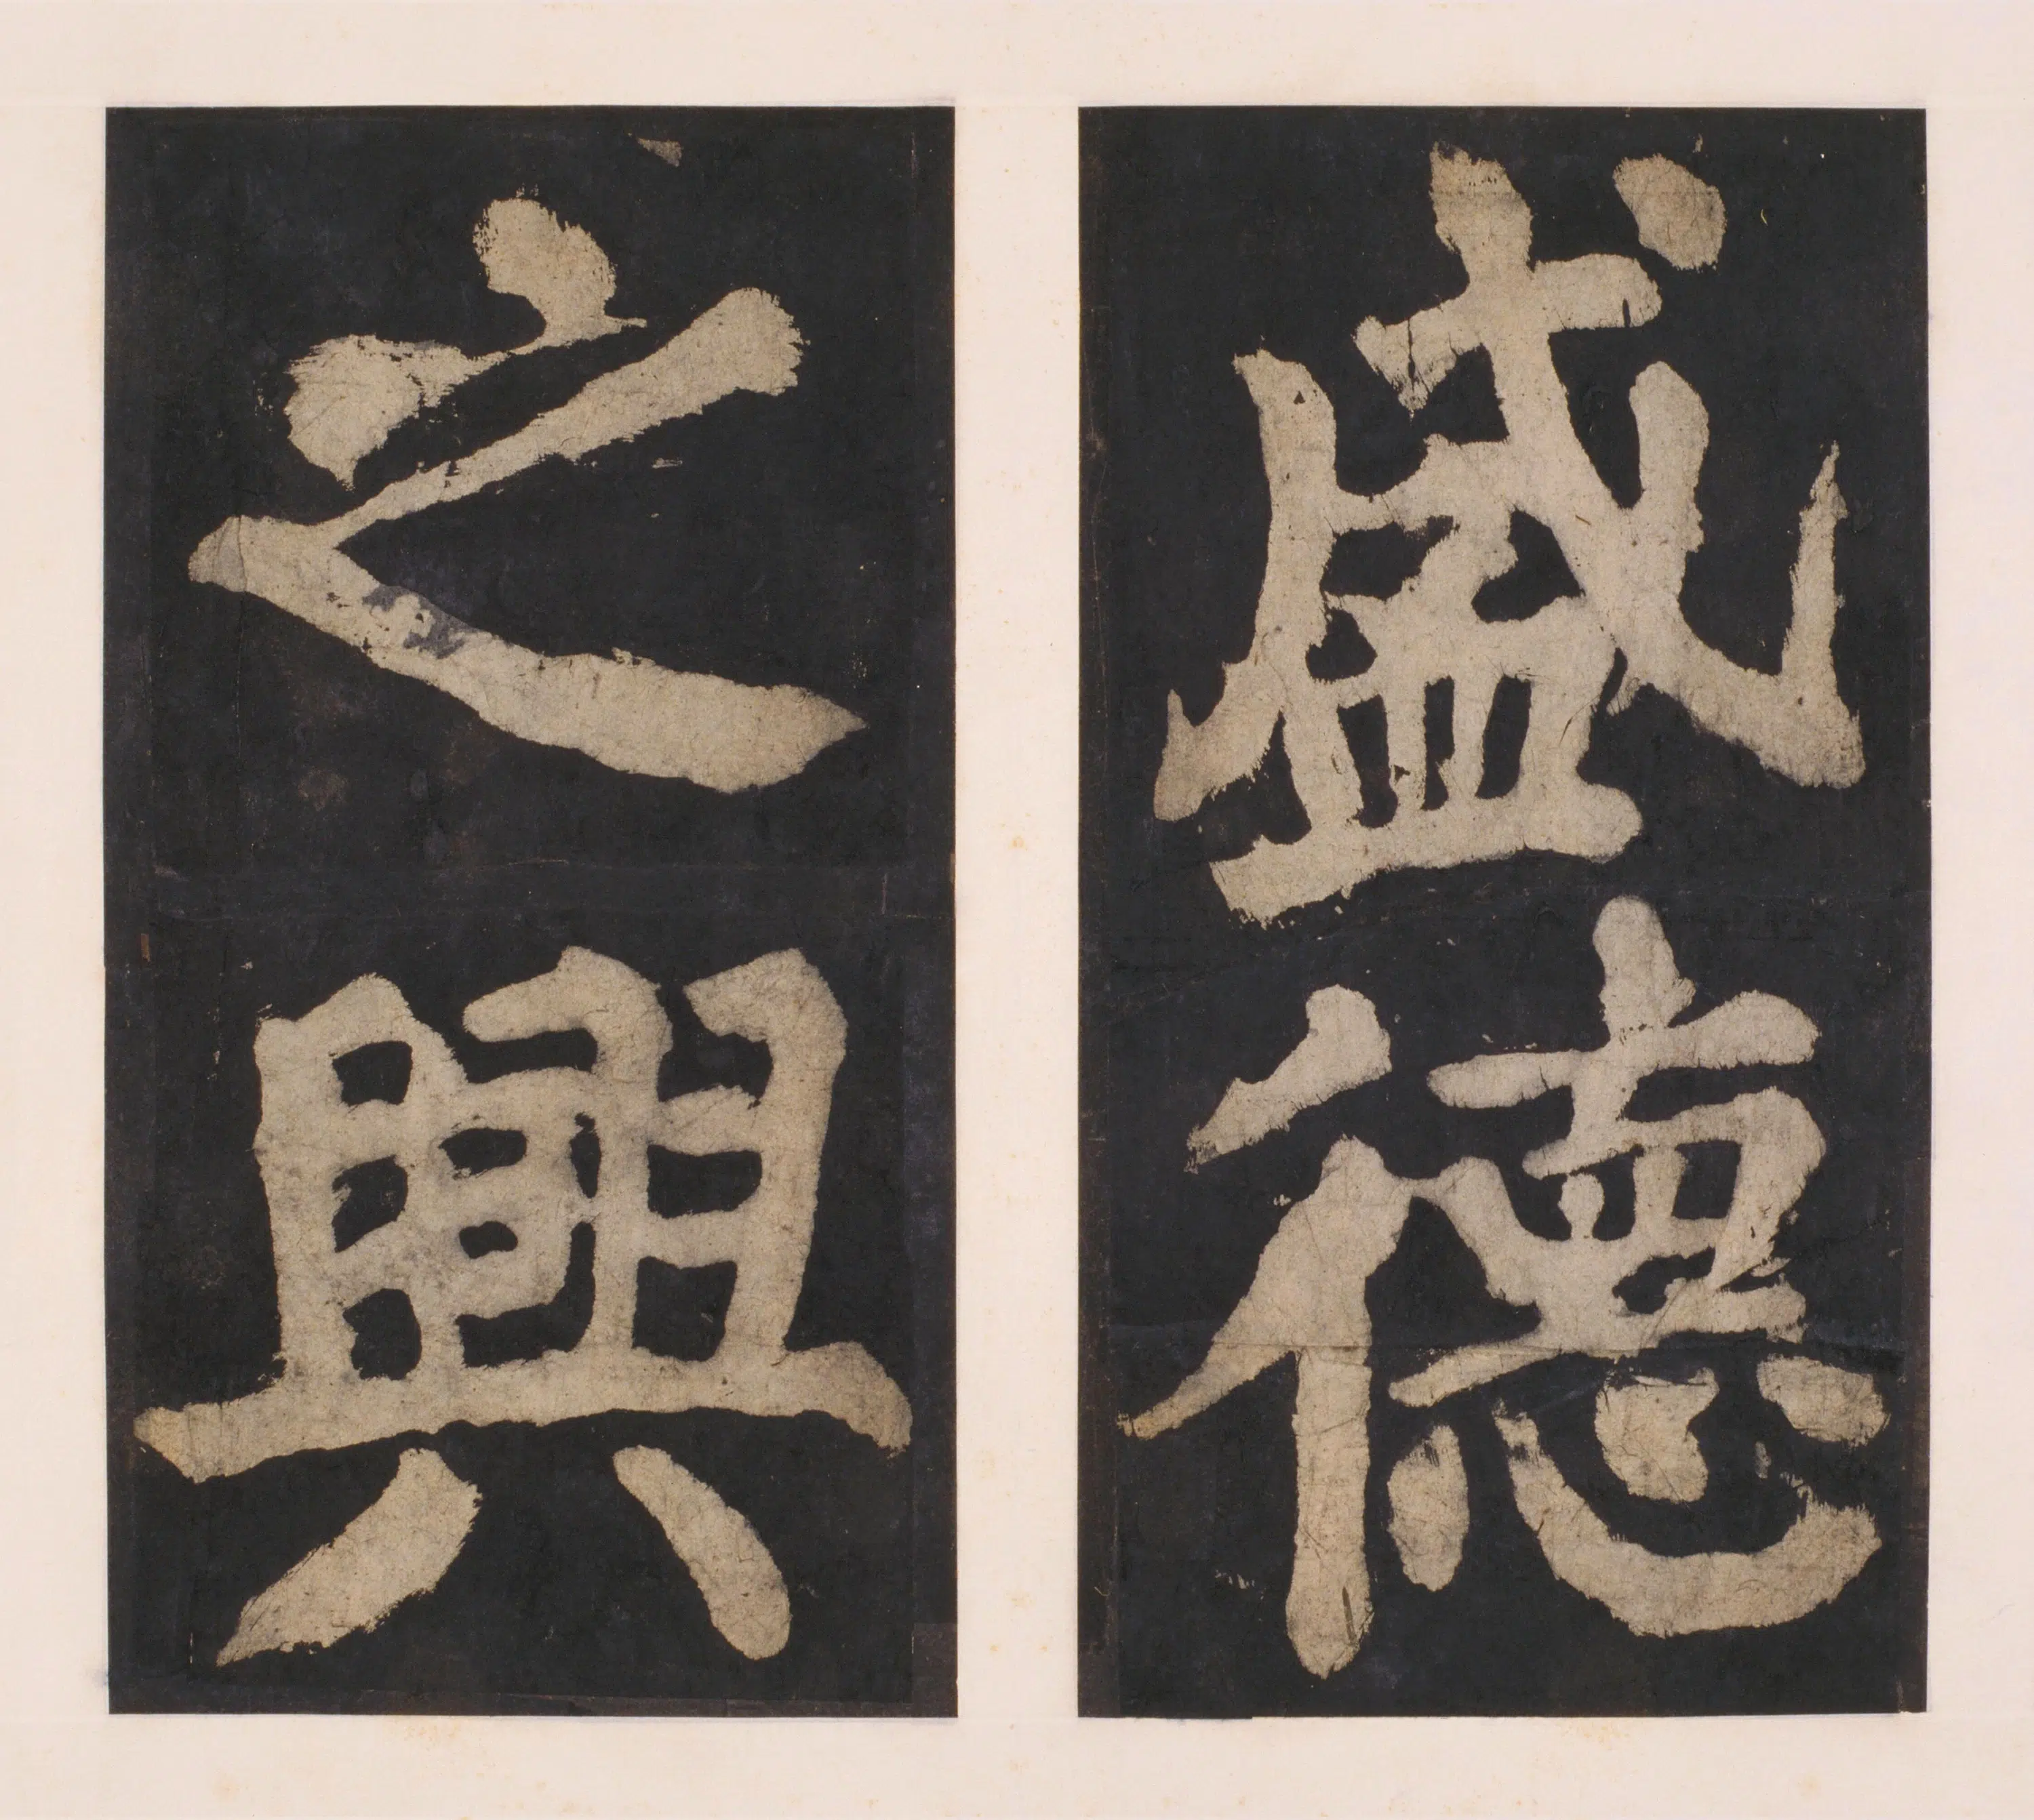 盛德
之興